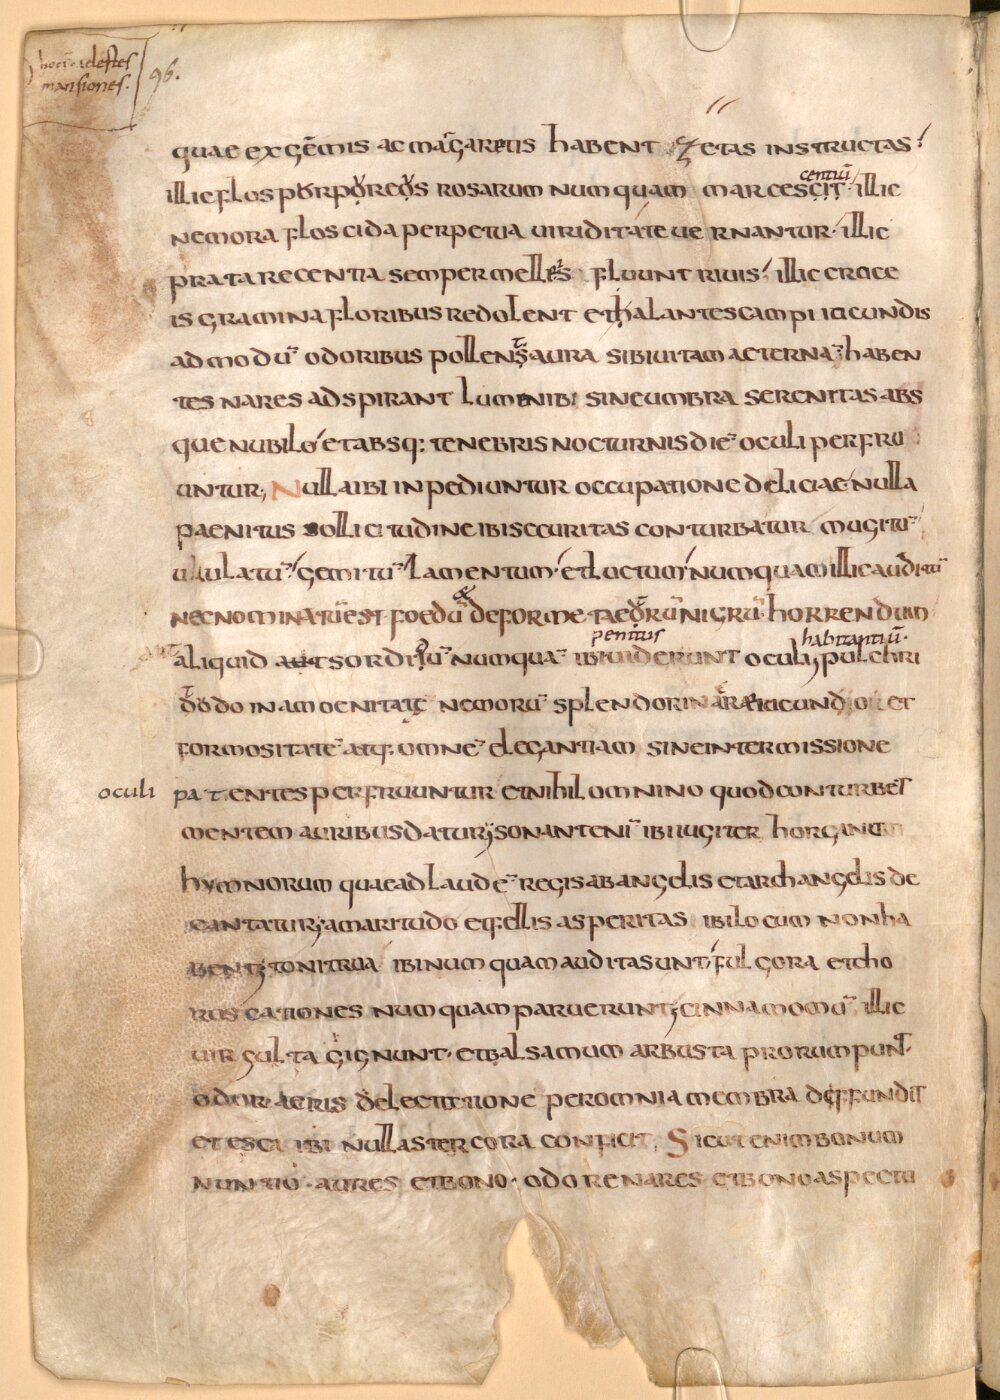 mansiones.
96.
quae ex gēmis ac mar̄garetis habent zetas instructas
centiū
illic flos purpureus rosarum numquam marcescit illic
nemora floscida perpetua uiriditate uernantur illic
prata recentia semper mellis fluunt riuis illic croce
is gramina floribus redolent et halantes campi iucundis
ad modū odoribus pollens aura sibi uitam aeternā haben
tes nares adspirant lumen ibi sine umbra serenitas abs
que nubilo et absq: tenebris nocturnis diē oculi perfru
untur; Nulla ibi inpediuntur occupatione deliciae nulla
paenitus sollicitudine ibi securitas conturbatur mugitū
ululatū gemitū lamentum et luctum numquam illic auditū
nec nominatū est foedū & deforme taedrū nigrū horrendum
penitus habitantiū
aliquid aut sordidū numquā ibi uiderunt oculi pulchri
tudo in amoenitate nemorū splendor in aere iucundior et
formositatē atq: omnē elegantiam sine intermissione
oculi patentes perfruuntur et nihil omnino quod conturbet
mentem auribus datur; sonant enī ibi iugiter horgana
hymnorum quae ad laudē regis ab angelis et archangelis de
cantatur; amaritudo et fellis asperitas ibi locum non ha
bent; tonitrua ibi numquam audita sunt fulgora et cho
ruscationes numquam paruerunt; cinnamomū illic
uirgulta gignunt et balsamum arbusta prorumpunt
odor aeris delectatione per omnia membra deffundit
et esca ibi nulla stercora conficit, Sicut enim bonum
nuntio aures et bono odore nares et bono aspectu